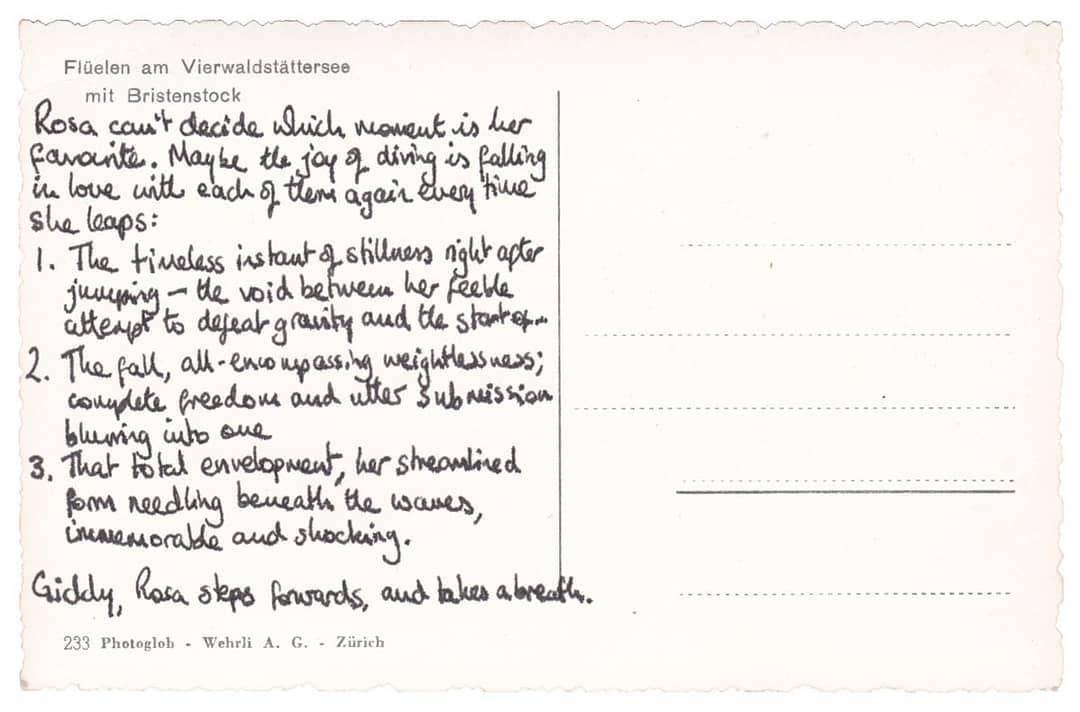 Flüelen am Vierwaldstättersee
mit Bristenstock
Rosa can't decide which moment is her
favourite. Maybe the joy of diving is falling
in love with each of them again every time
she leaps:
1. The timeless instant of stillness right after
jumping – the void between her feeble
attempt to defeat gravity and the start of...
2. The fall, all-encompassing weightlessness;
complete freedom and utter submission
blurring into one
3. That total envelopment, her streamlined
form needling beneath the waves,
immemorable and shocking.
Giddy, Rosa steps forwards, and takes a breath.
233 Photoglob - Wehrli A. G. - Zürich